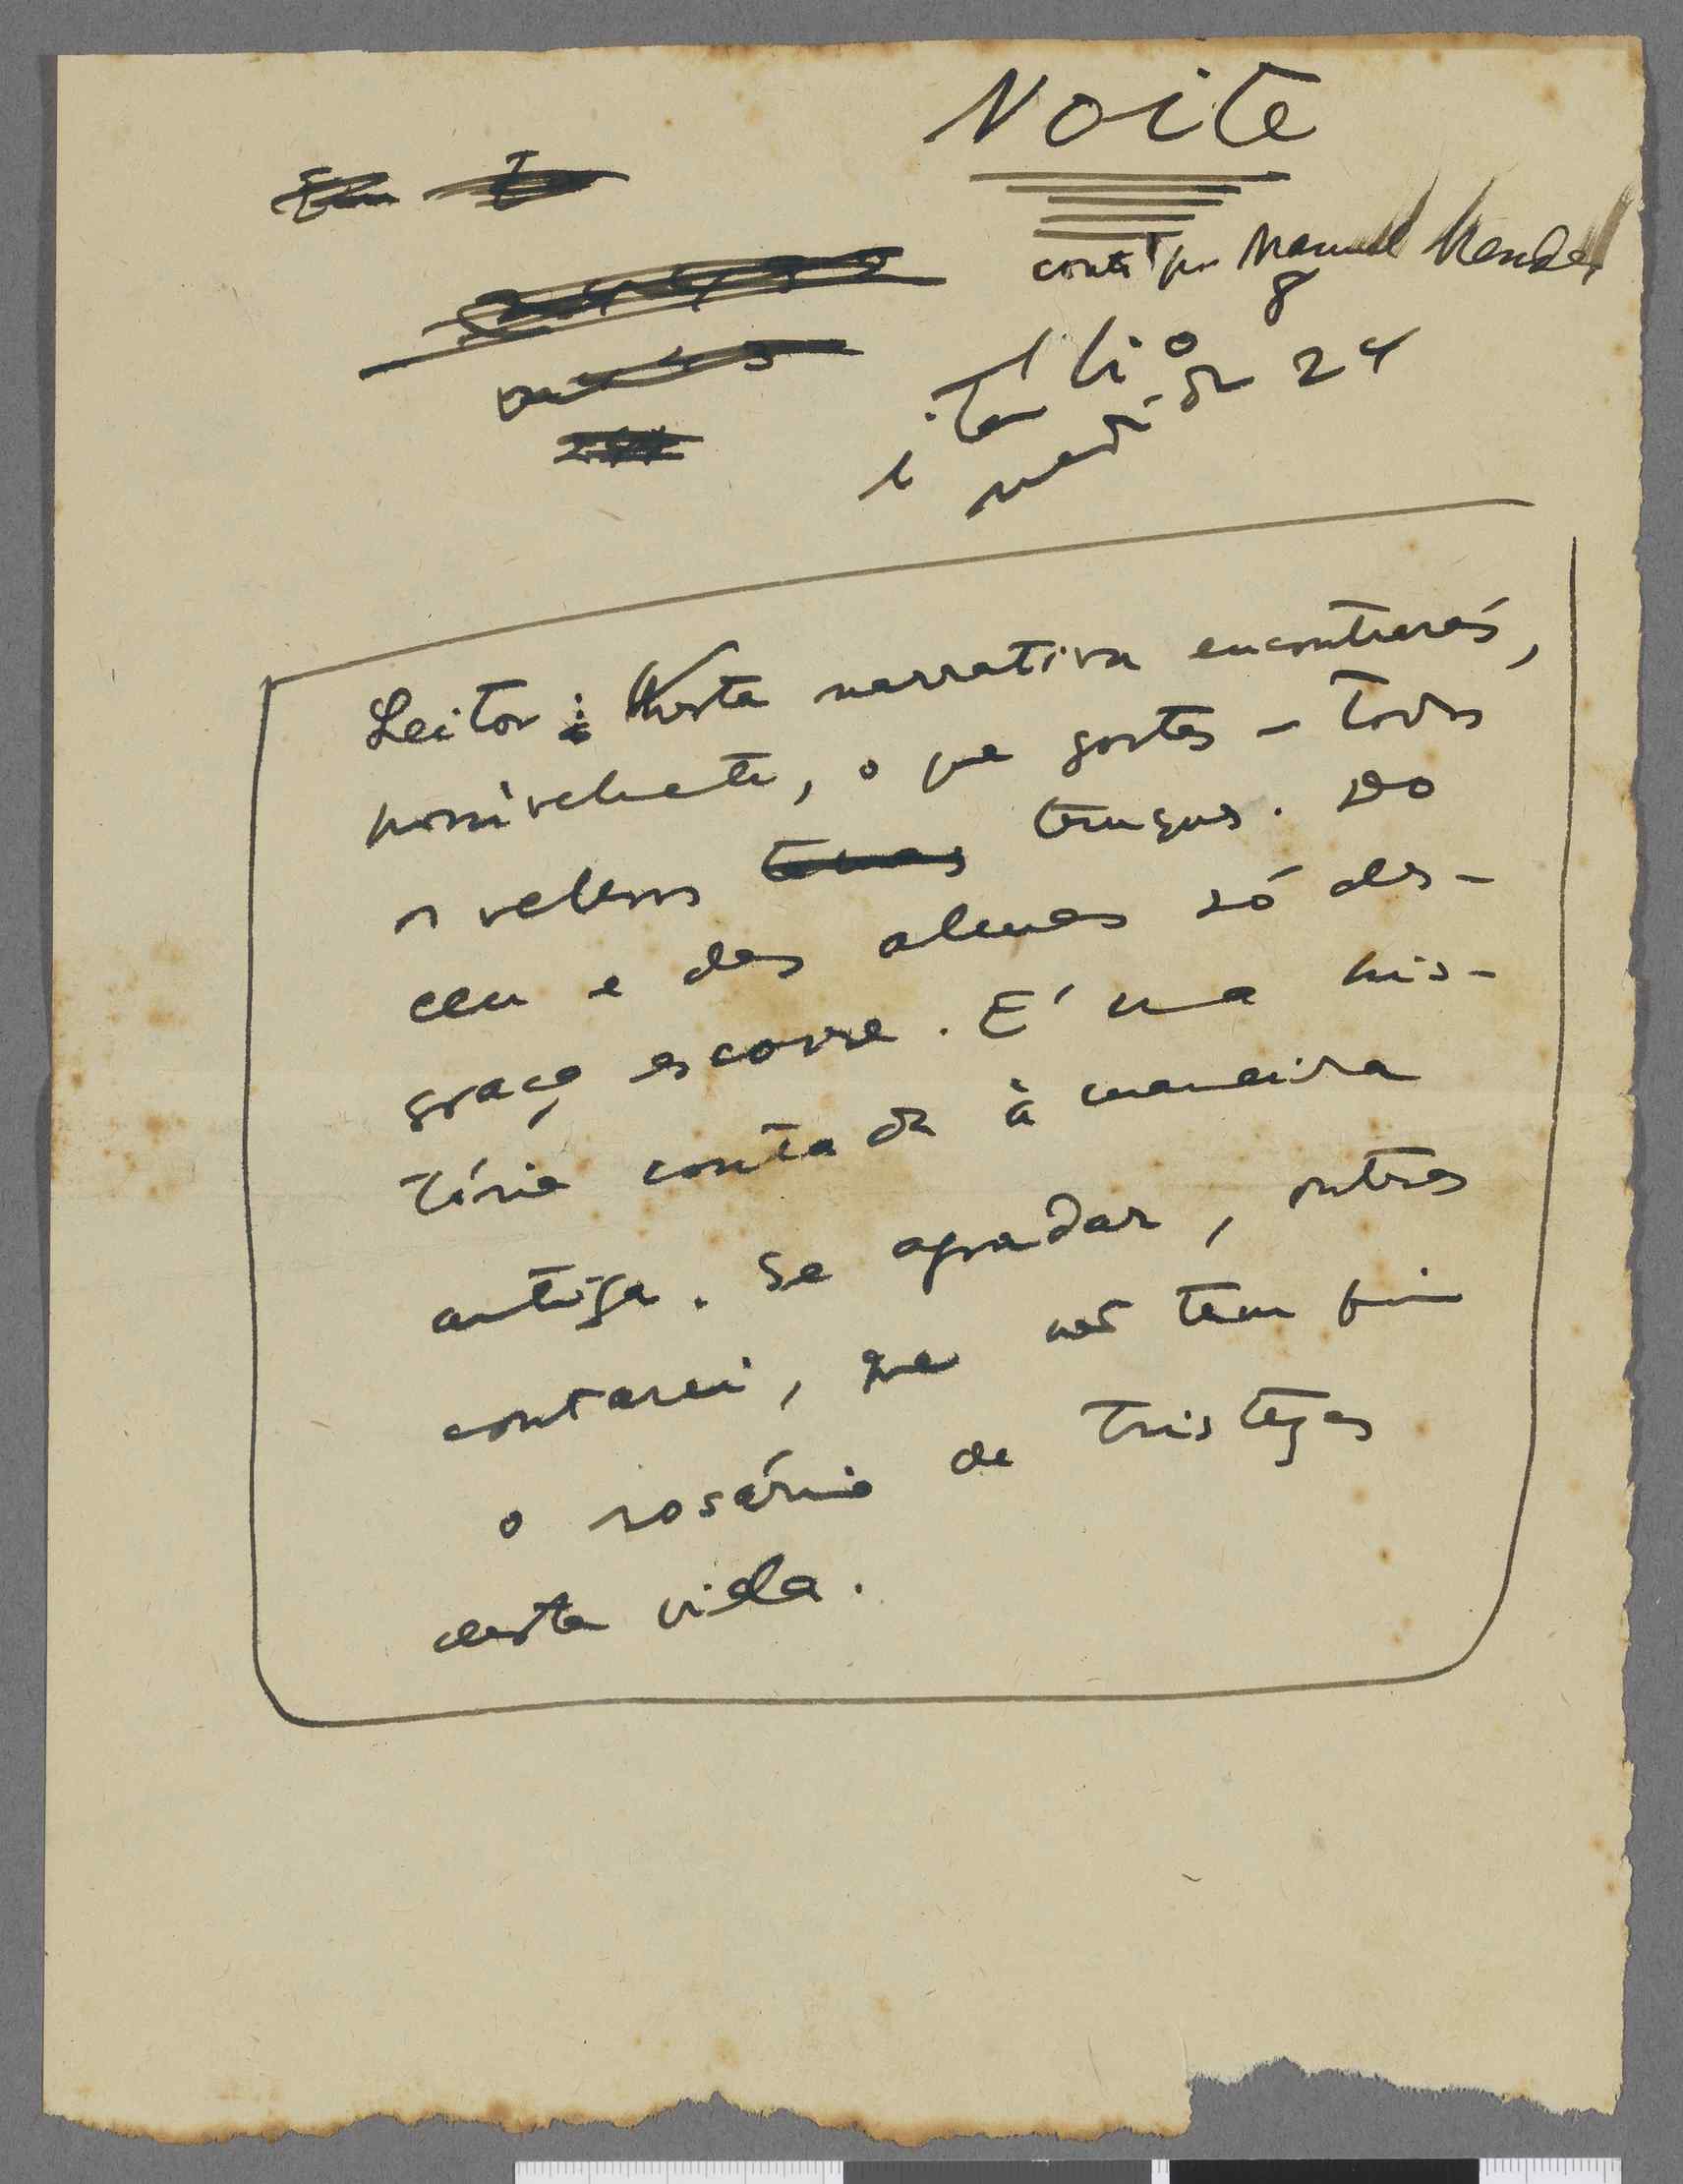 Noite
conto por Manuel Mendes
8
itálico
24
Leitor: Nesta narrativa encontrarás,
possivelmente, o que gostes – todos
os velhos temas. Do
ceu e das almas só des-
graça escorre. E' uma his-
tória contada à maneira
antiga. Se agradar, outras
contarei, que não tem fim
o rosário de tristezas
desta vida.